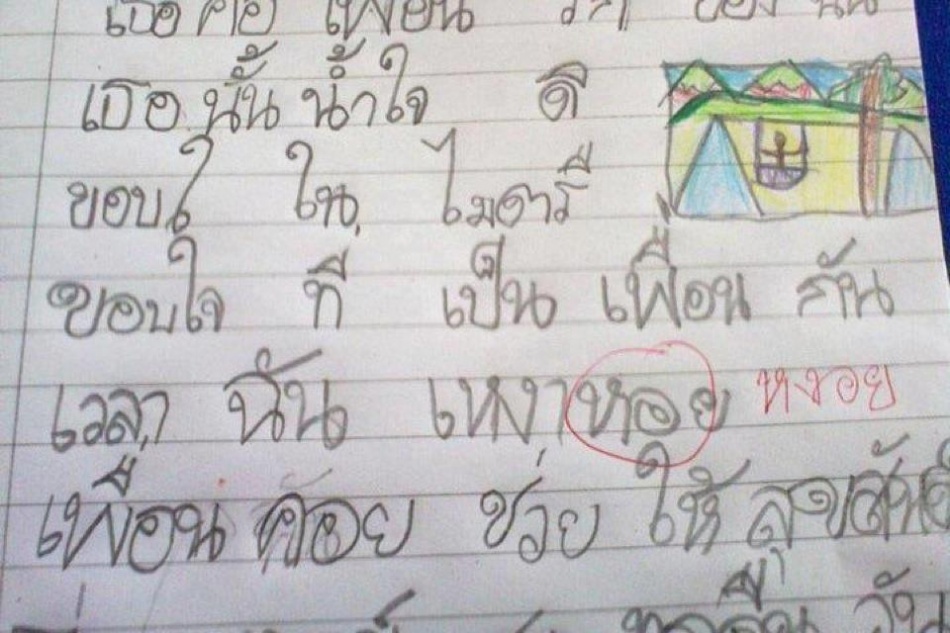 เธอ คือ เพื่อน รัก ของ ฉัน
เธอ นั้น น้ำใจ ดี
ขอบใ ใน ไมตารี
ขอบใจ ที่ เป็น เพื่อน กัน
เวลา ฉัน เหงาหอย หงอย
เพื่อน คอย ช่วย ให้